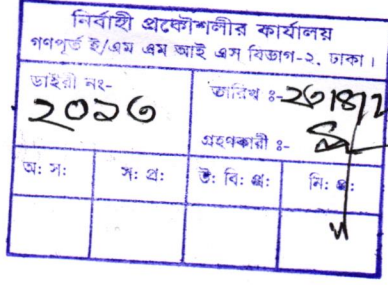 নির্বাহী প্রকৌশলীর কার্যালয়
গণপূর্ত ই/এম এম আই এস বিভাগ-২, ঢাকা।
ডাইরী নং-
২০১৩
তারিখ ঃ-
গ্রহণকারী ঃ-
অ: স: স: প্র: উ: বি: প্র: নি: প্র: